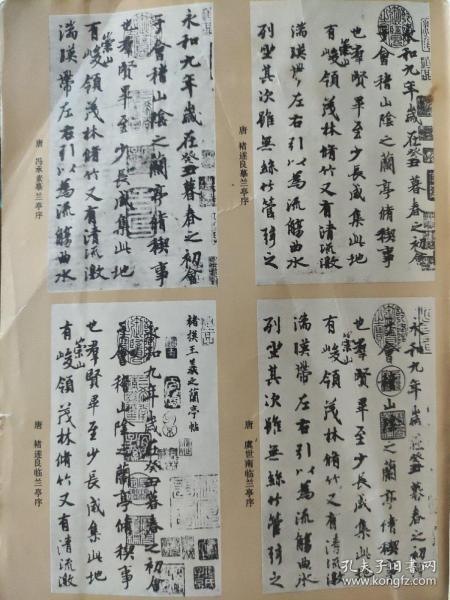 永和九年歲在癸丑暮春之初會
于會稽山陰之蘭亭脩稧事
也羣賢畢至少長咸集此地
有崇山峻領茂林脩竹又有清流激
湍暎帶左右引以為流觴曲水
唐　冯承素摹兰亭序
永和九年歲在癸丑暮春之初會
于會稽山陰之蘭亭脩稧事
也羣賢畢至少長咸集此地
有崇山峻領茂林脩竹又有清流激
湍暎帶左右引以為流觴曲水
列坐其次雖無絲竹管弦之
唐　褚遂良摹兰亭序
褚摸王羲之蘭亭帖
永和九年歲在癸丑暮春之初會
于會稽山陰之蘭亭脩稧事
也羣賢畢至少長咸集此地
有崇山峻領茂林脩竹又有清流激
唐　褚遂良临兰亭序
永和九年歲在癸丑暮春之初
會于會稽山陰之蘭亭脩稧事
也羣賢畢至少長咸集此地
有崇山峻領茂林脩竹又有清流激
湍暎帶左右引以為流觴曲水
列坐其次雖無絲竹管弦之
唐　虞世南临兰亭序
孔夫子旧书网